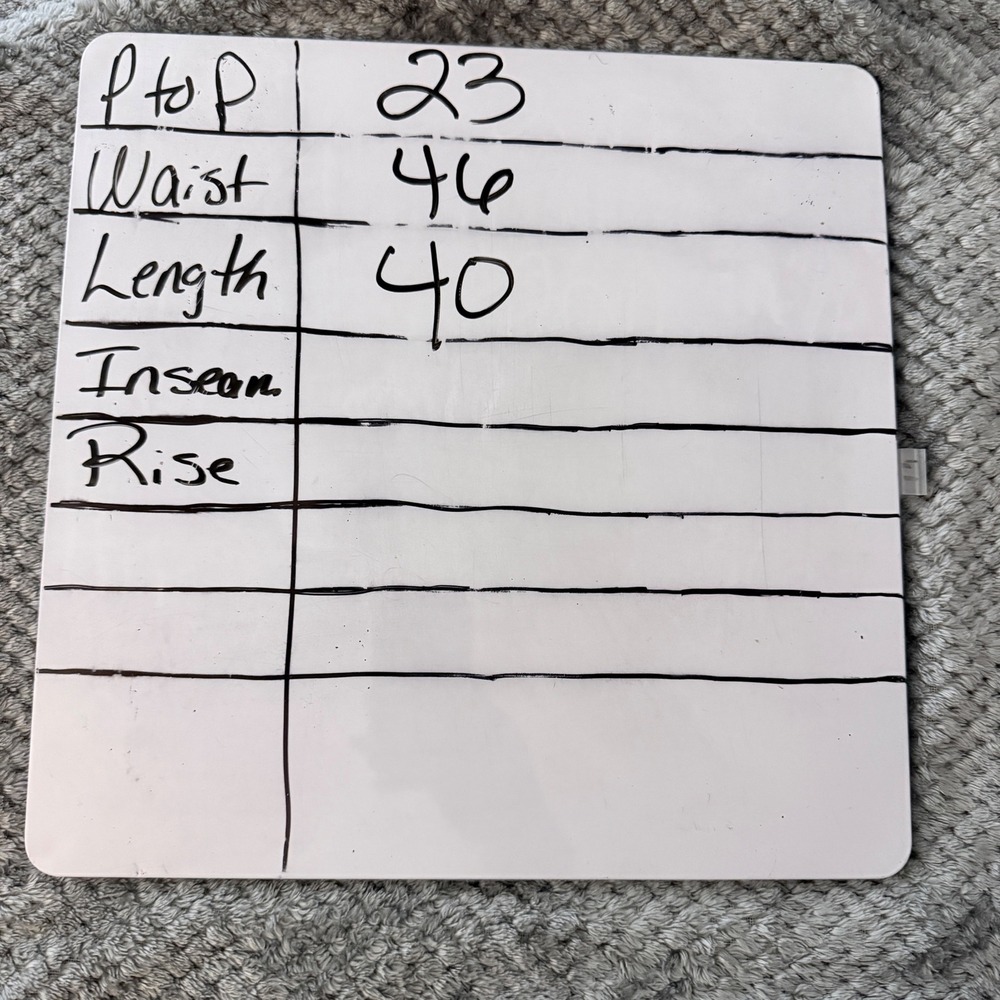 P to P 23
Waist 46
Length 40
Inseam
Rise